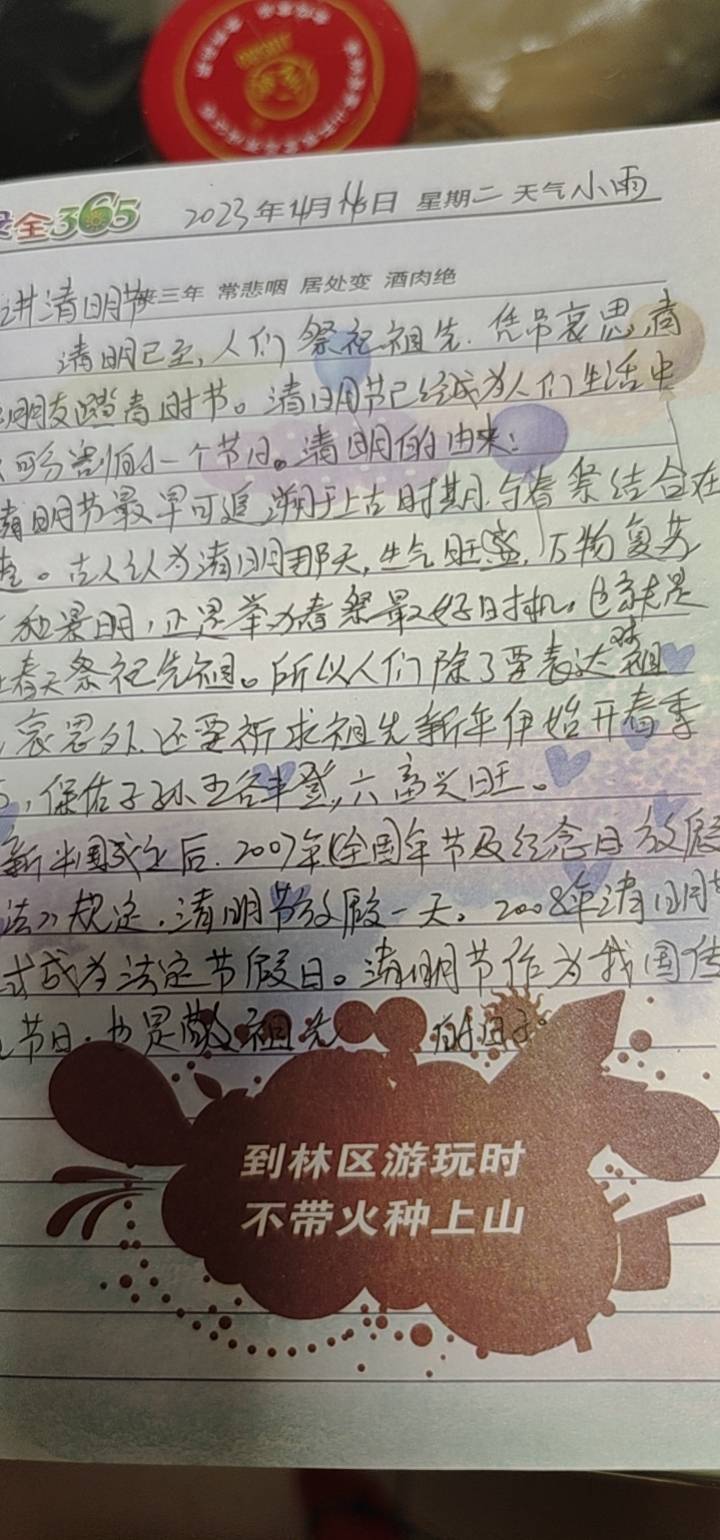 全365 2023年4月4日 星期二 天气小雨
讲清明节 三年 常悲咽 居处变 酒肉绝
清明已至,人们祭祀祖先.凭吊哀思,商
朋友踏青时节。清明节已经成为人们生活中
可分割的一个节日。清明的由来:
清明节最早可追溯于上古时期,与春祭结合在
。古人认为清明那天,生气旺盛,万物复苏
和景明,正是举办春祭最好时机。也就是
春天祭祀先祖。所以人们除了要表达对祖
哀思外.还要祈求祖先新年伊始开春季
,保佑子孙五谷丰登,六畜兴旺。
新中国成立后.2007年《全国年节及纪念日放假
法》规定,清明节放假一天。2008年清明
式成为法定节假日。清明节作为我国传
节日.也是 祖先 的日子。
到林区游玩时
不带火种上山